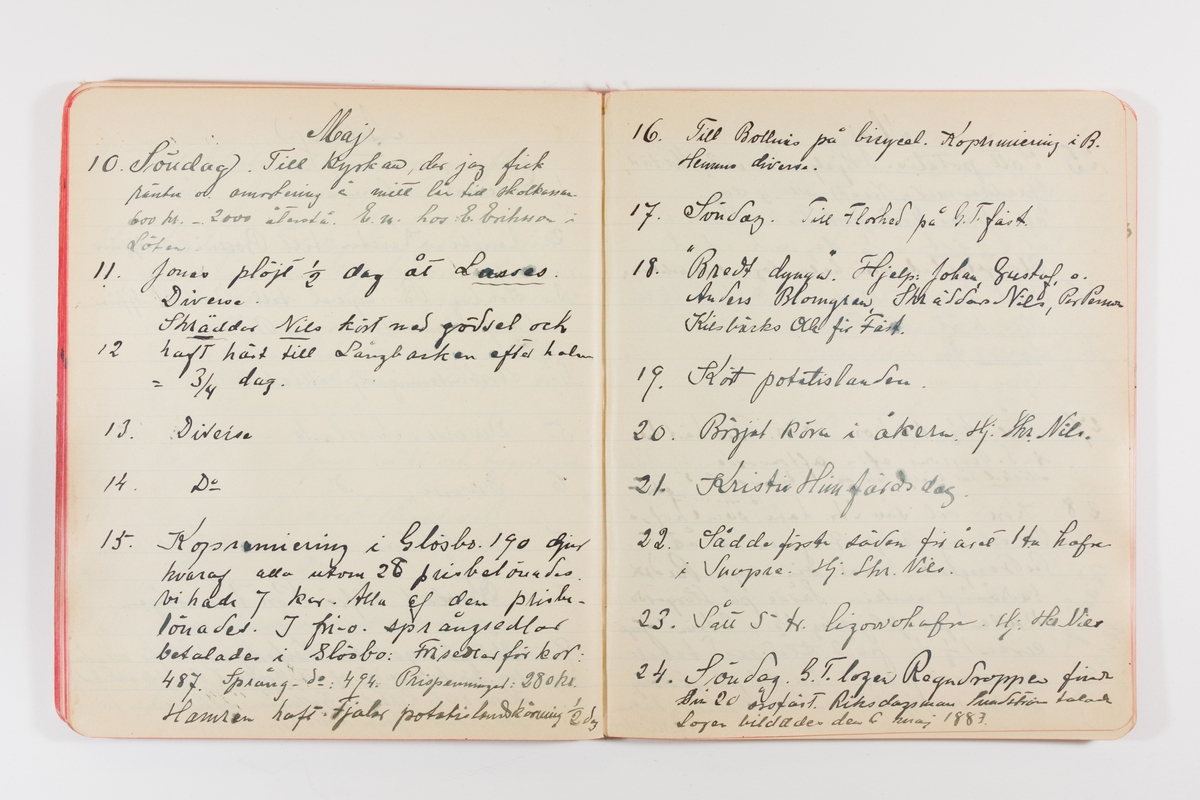 Maj.
10. Söndag. Till kyrkan, der jag fick
ränta o. amortering å mitt lån till skolkassan
600 kr. - 2000 återstå. E. m. hos E. Eriksson i
Löten.
11. Jonas plöjt 1/2 dag åt Lasses.
Diverse.
Skräddar Nils kört ned gödsel och
12 haft häst till Långbacken efter halm
= 3/4 dag.
13. Diverse
14. Do
15. Kopremiering i Glösbo. 190 djur
hvaraf alla utom 28 prisbelönades.
vi hade 7 kor. Alla af den prisbe-
lönades. I fri- o. språngsedlar
betalades i Glösbo: Frisedlar för kor:
487. Språng- do: 494. Prispenningar: 280 kr.
haft Fjalar potatislandskörning 1/2 dag
16. Till Bollnäs på bicycel. Kopremiering i B.
Hemma diverse.
17. Söndag. Till Florhed på G.T. fäst.
18. "Bredt dynga". Hjelp: Johan, Gustaf, o.
Anders Blomgren, Skräddar Nils, Per Persson
Kilsbäcks Ole för Fäst.
19. Kört potatislanden.
20. Börjat köra i åkern. Hj. Skr. Nils.
21. Kristi Himfärdsdag.
22. Sådde första säden för året 1 tu hafre
i Hj. Skr. Nils.
23. Sått 5 tr. ligowohafre. Hj. Skr Nils
24. Söndag. G.T. logen Regndroppen firar
sin 20 årsfäst. Riksdagsman Sundström talade
Logen bildades den 6 maj 1883.